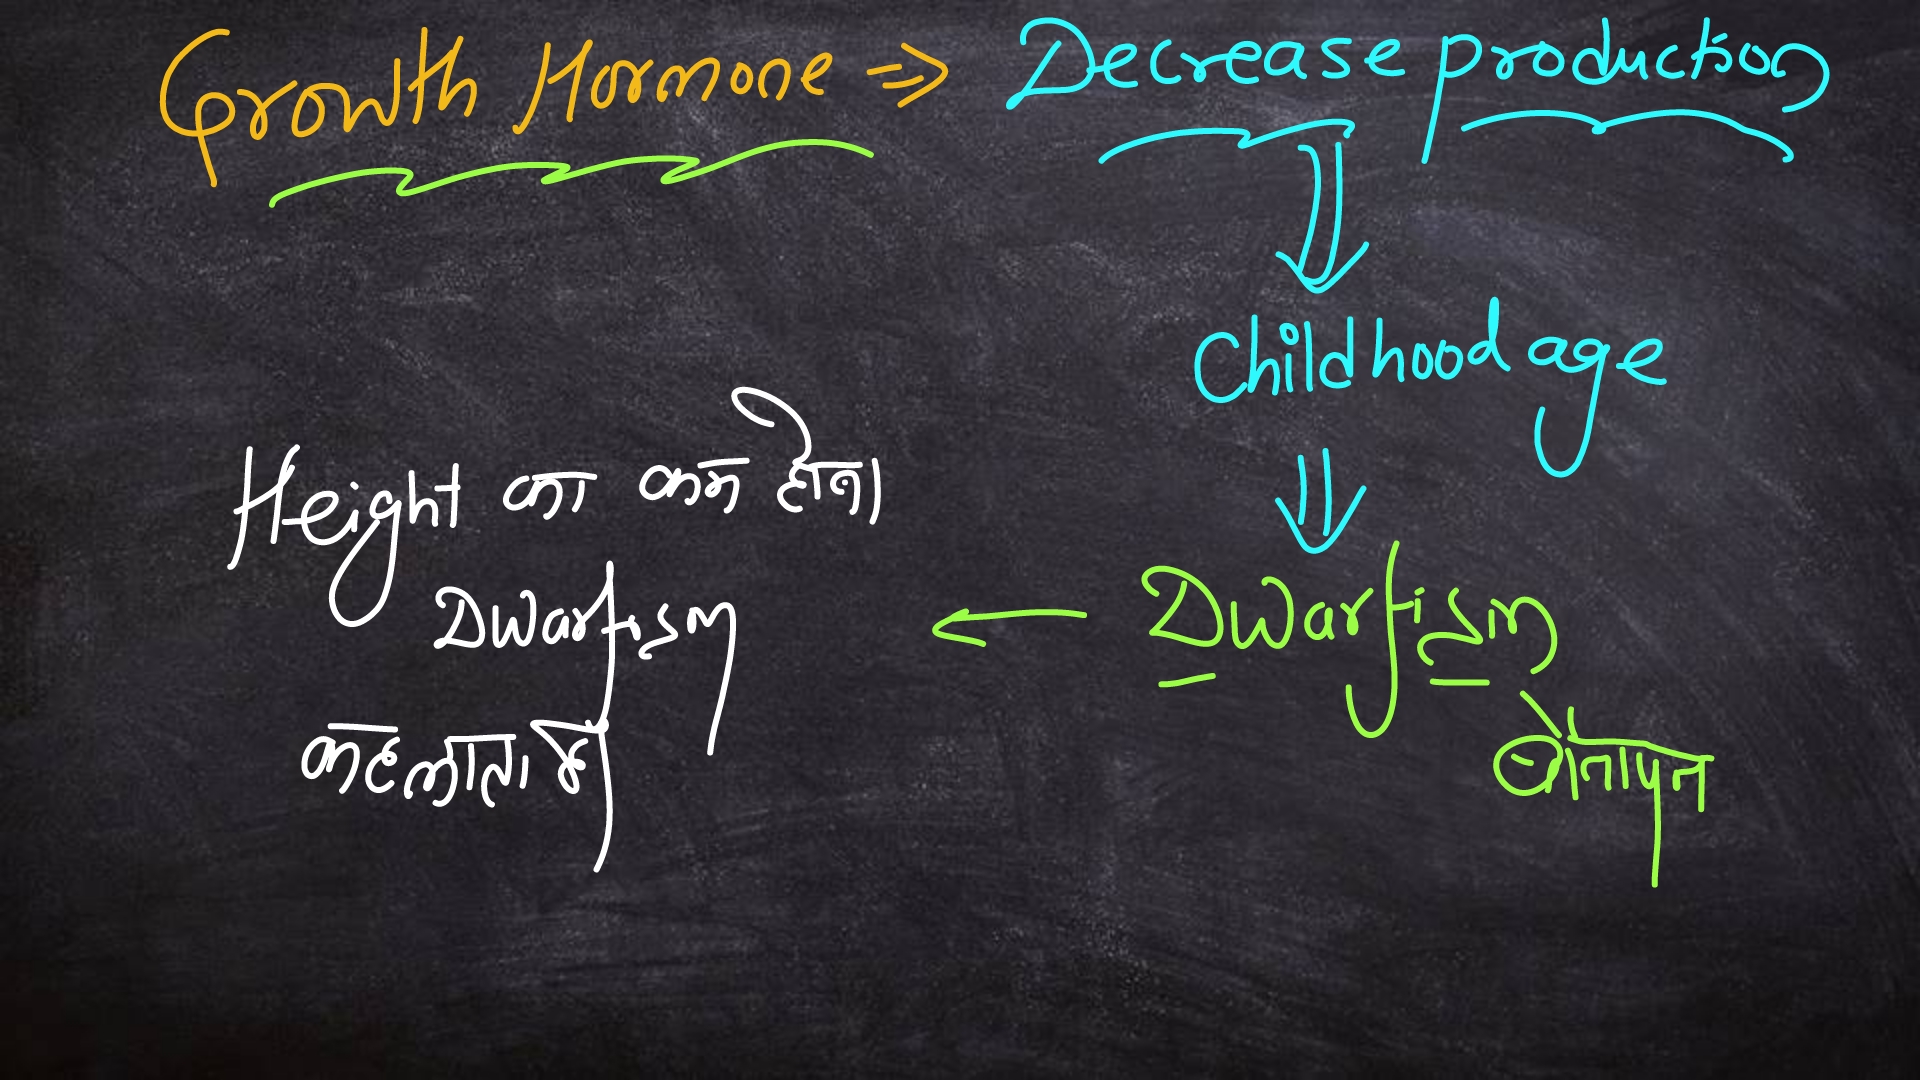 Growth Hormone ⇒ Decrease production
Childhood age
Dwarfism
बौनापन
Height का कम होना
Dwarfism
कहलाता है